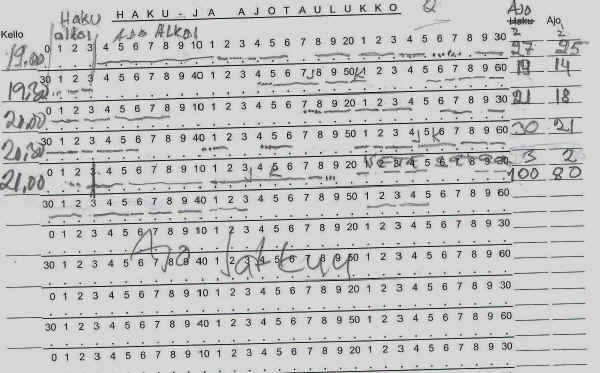 Haku HAKU-JA AJOTAULUKKO Q AJO
Kello alkoi AJO ALKOI Haku Ajo
2 2
19.00 0 1 2 3 4 5 6 7 8 9 10 1 2 3 4 5 6 7 8 9 20 1 2 3 4 5 6 7 8 9 30 27 25
19.30 30 1 2 3 4 5 6 7 8 9 40 1 2 3 4 5 6 7 8 9 50 1 2 3 4 5 6 7 8 9 60 14
20.00 0 1 2 3 4 5 6 7 8 9 10 1 2 3 4 5 6 7 8 9 20 1 2 3 4 5 6 7 8 9 30 21 18
20.30 30 1 2 3 4 5 6 7 8 9 40 1 2 3 4 5 6 7 8 9 50 1 2 3 4 5 6 7 8 9 60 30 21
21.00 0 1 2 3 4 5 6 7 8 9 10 1 2 3 4 5 6 7 8 9 20 1 2 3 4 5 6 7 8 9 30 3 2
100 80
30 1 2 3 4 5 6 7 8 9 40 1 2 3 4 5 6 7 8 9 50 1 2 3 4 5 6 7 8 9 60
0 1 2 3 4 5 6 7 8 9 10 1 2 3 4 5 6 7 8 9 20 1 2 3 4 5 6 7 8 9 30
Ajo Jatkuu
30 1 2 3 4 5 6 7 8 9 40 1 2 3 4 5 6 7 8 9 50 1 2 3 4 5 6 7 8 9 60
0 1 2 3 4 5 6 7 8 9 10 1 2 3 4 5 6 7 8 9 20 1 2 3 4 5 6 7 8 9 30
30 1 2 3 4 5 6 7 8 9 40 1 2 3 4 5 6 7 8 9 50 1 2 3 4 5 6 7 8 9 60
0 1 2 3 4 5 6 7 8 9 10 1 2 3 4 5 6 7 8 9 20 1 2 3 4 5 6 7 8 9 30